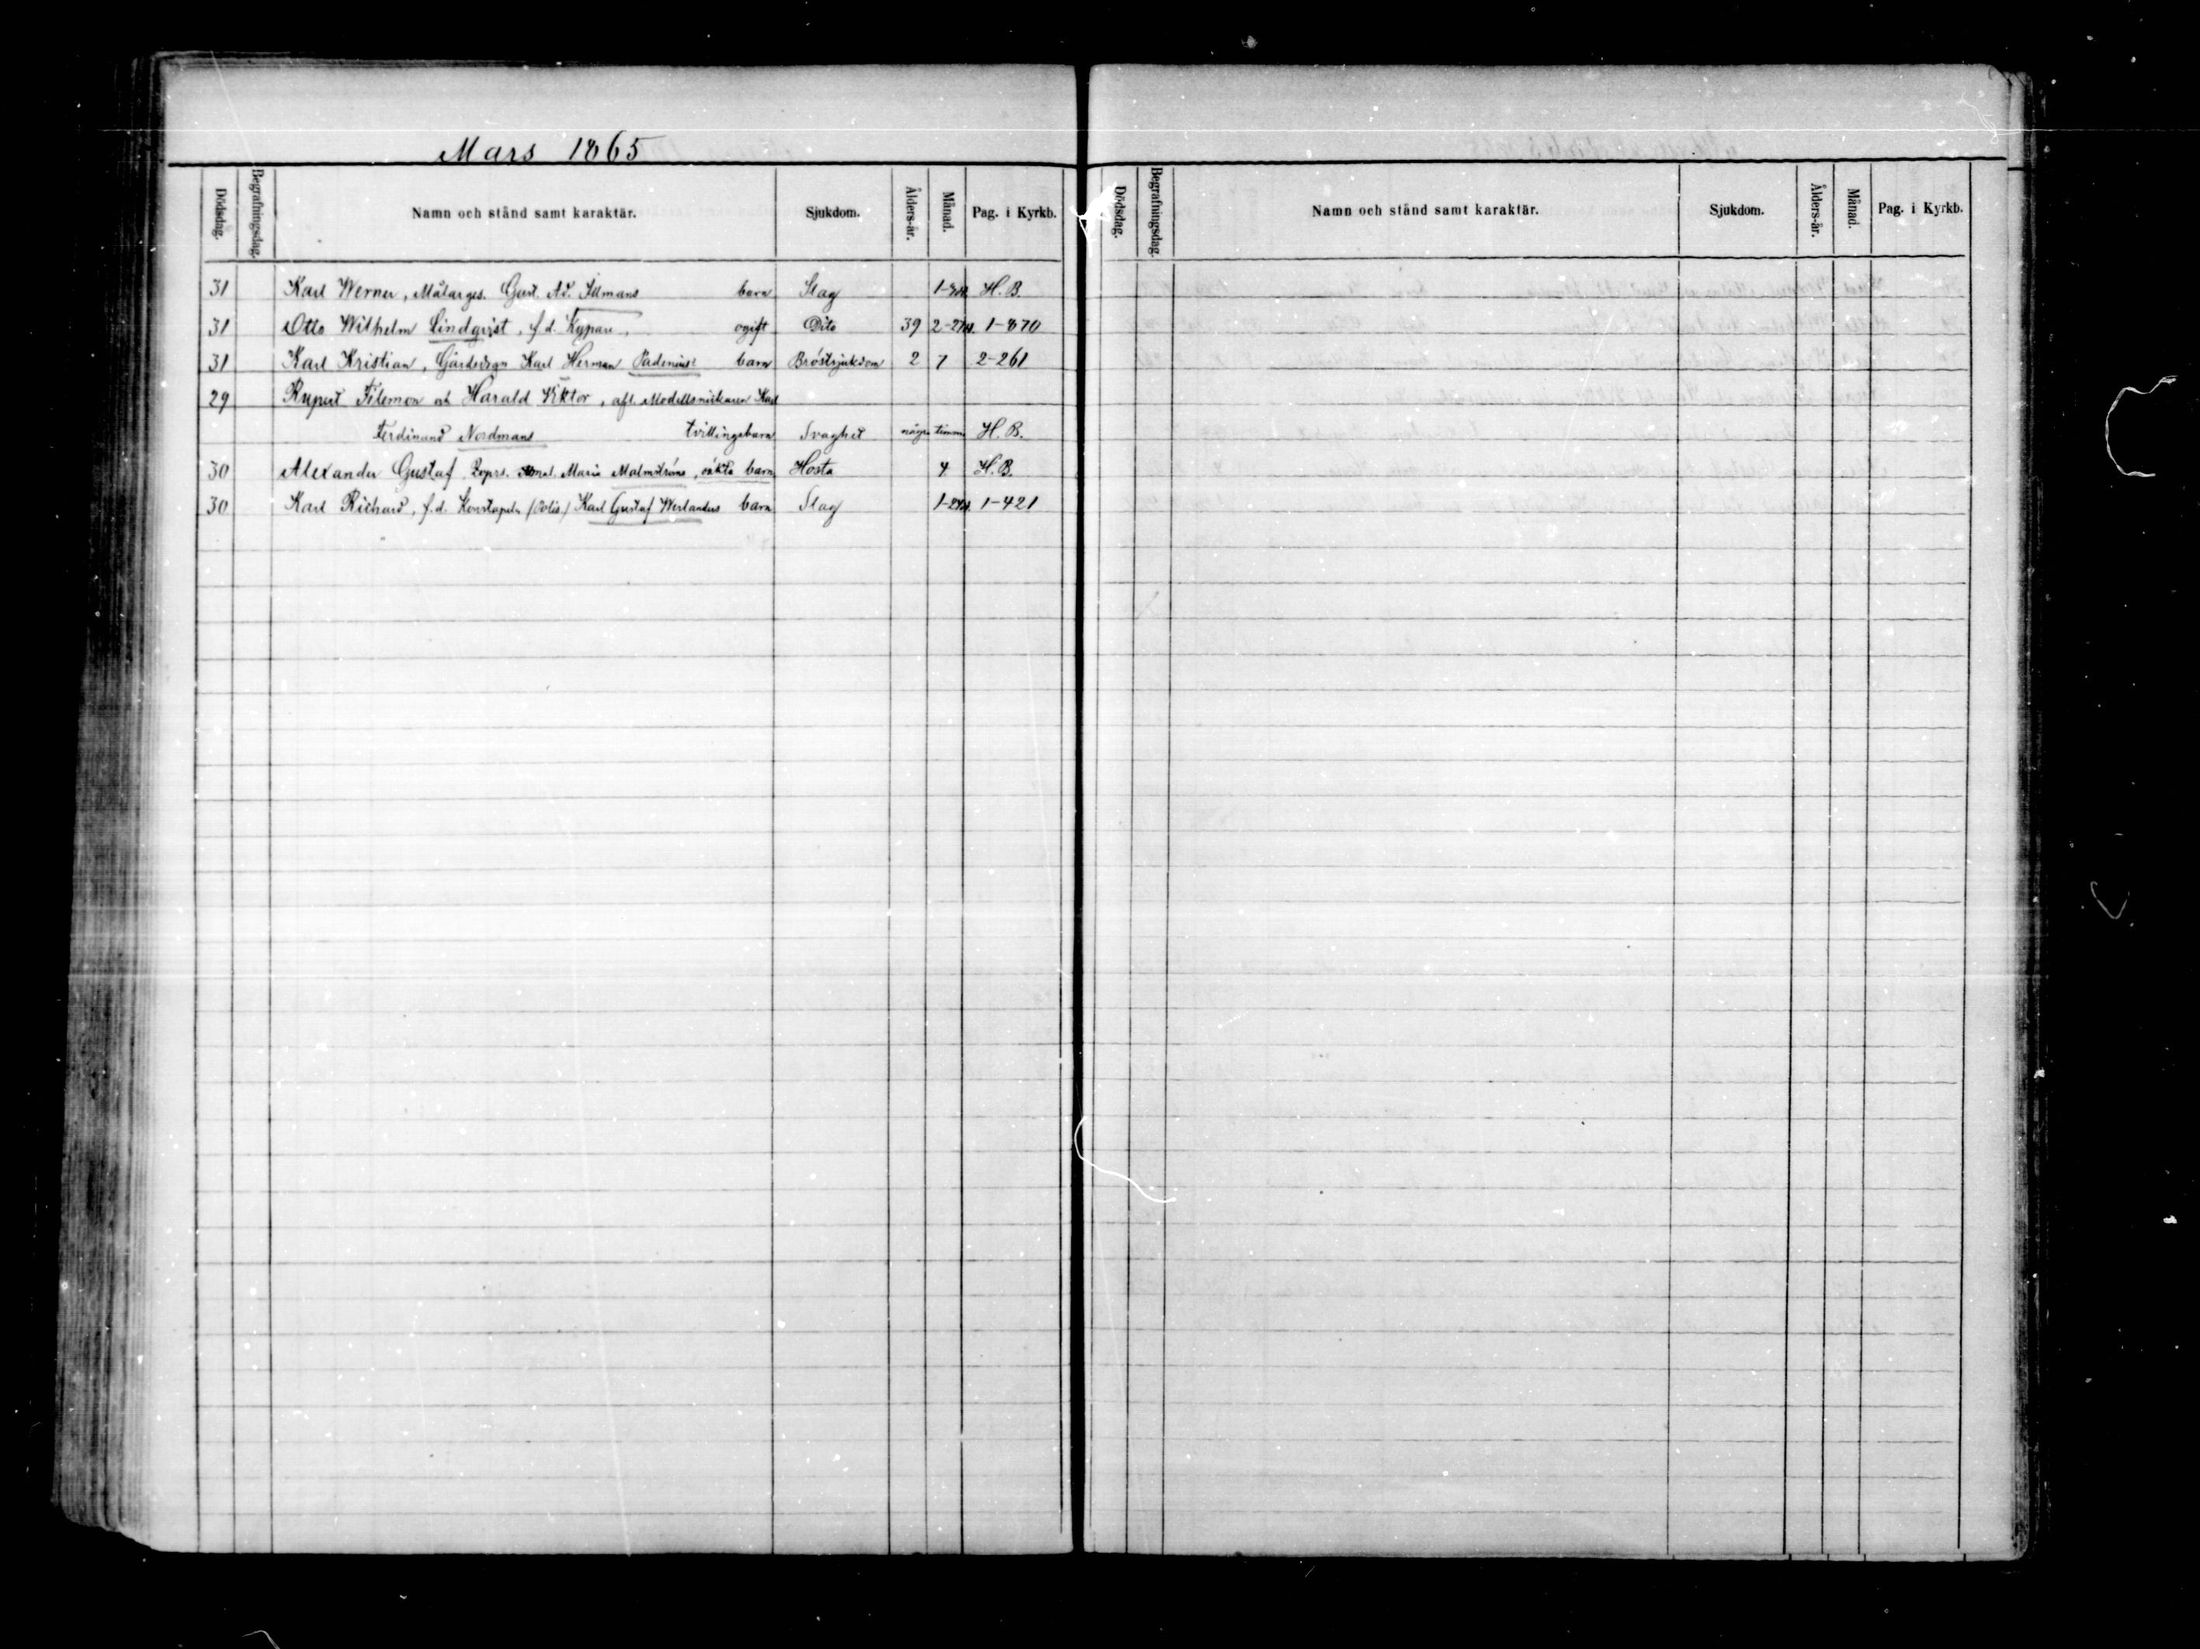 Mars 1865
Dödsdag. Begrafningsdag. Namn och stånd samt karaktär. Sjukdom. Ålders-år. Månad. Pag. i Kyrkb.
31 Karl Werner, Målarges. Gust. Ad. Illmans barn Slag H. B.
31 Otto Wilhelm Lindqvist, f.d. Kypare, ogift Dito 39 1-870
31 Karl Kristian, Karl Herman barn Bröstsjukdom 2 7 2-261
29 Rupert Filemon och Harald Viktor, afl. Modellsnickaren Karl
Ferdinand Nordmans tvillingebarn Svaghet några timm. H. B.
30 Alexander Gustaf, Maria Malmströms, oäkta barn Hosta 4 H. B.
30 Karl Richard, f.d. Konstapeln (Polis.) Karl Gustaf Werlanders barn Slag 1-421
Dödsdag. Begrafningsdag. Namn och stånd samt karaktär. Sjukdom. Ålders-år. Månad. Pag. i Kyrkb.